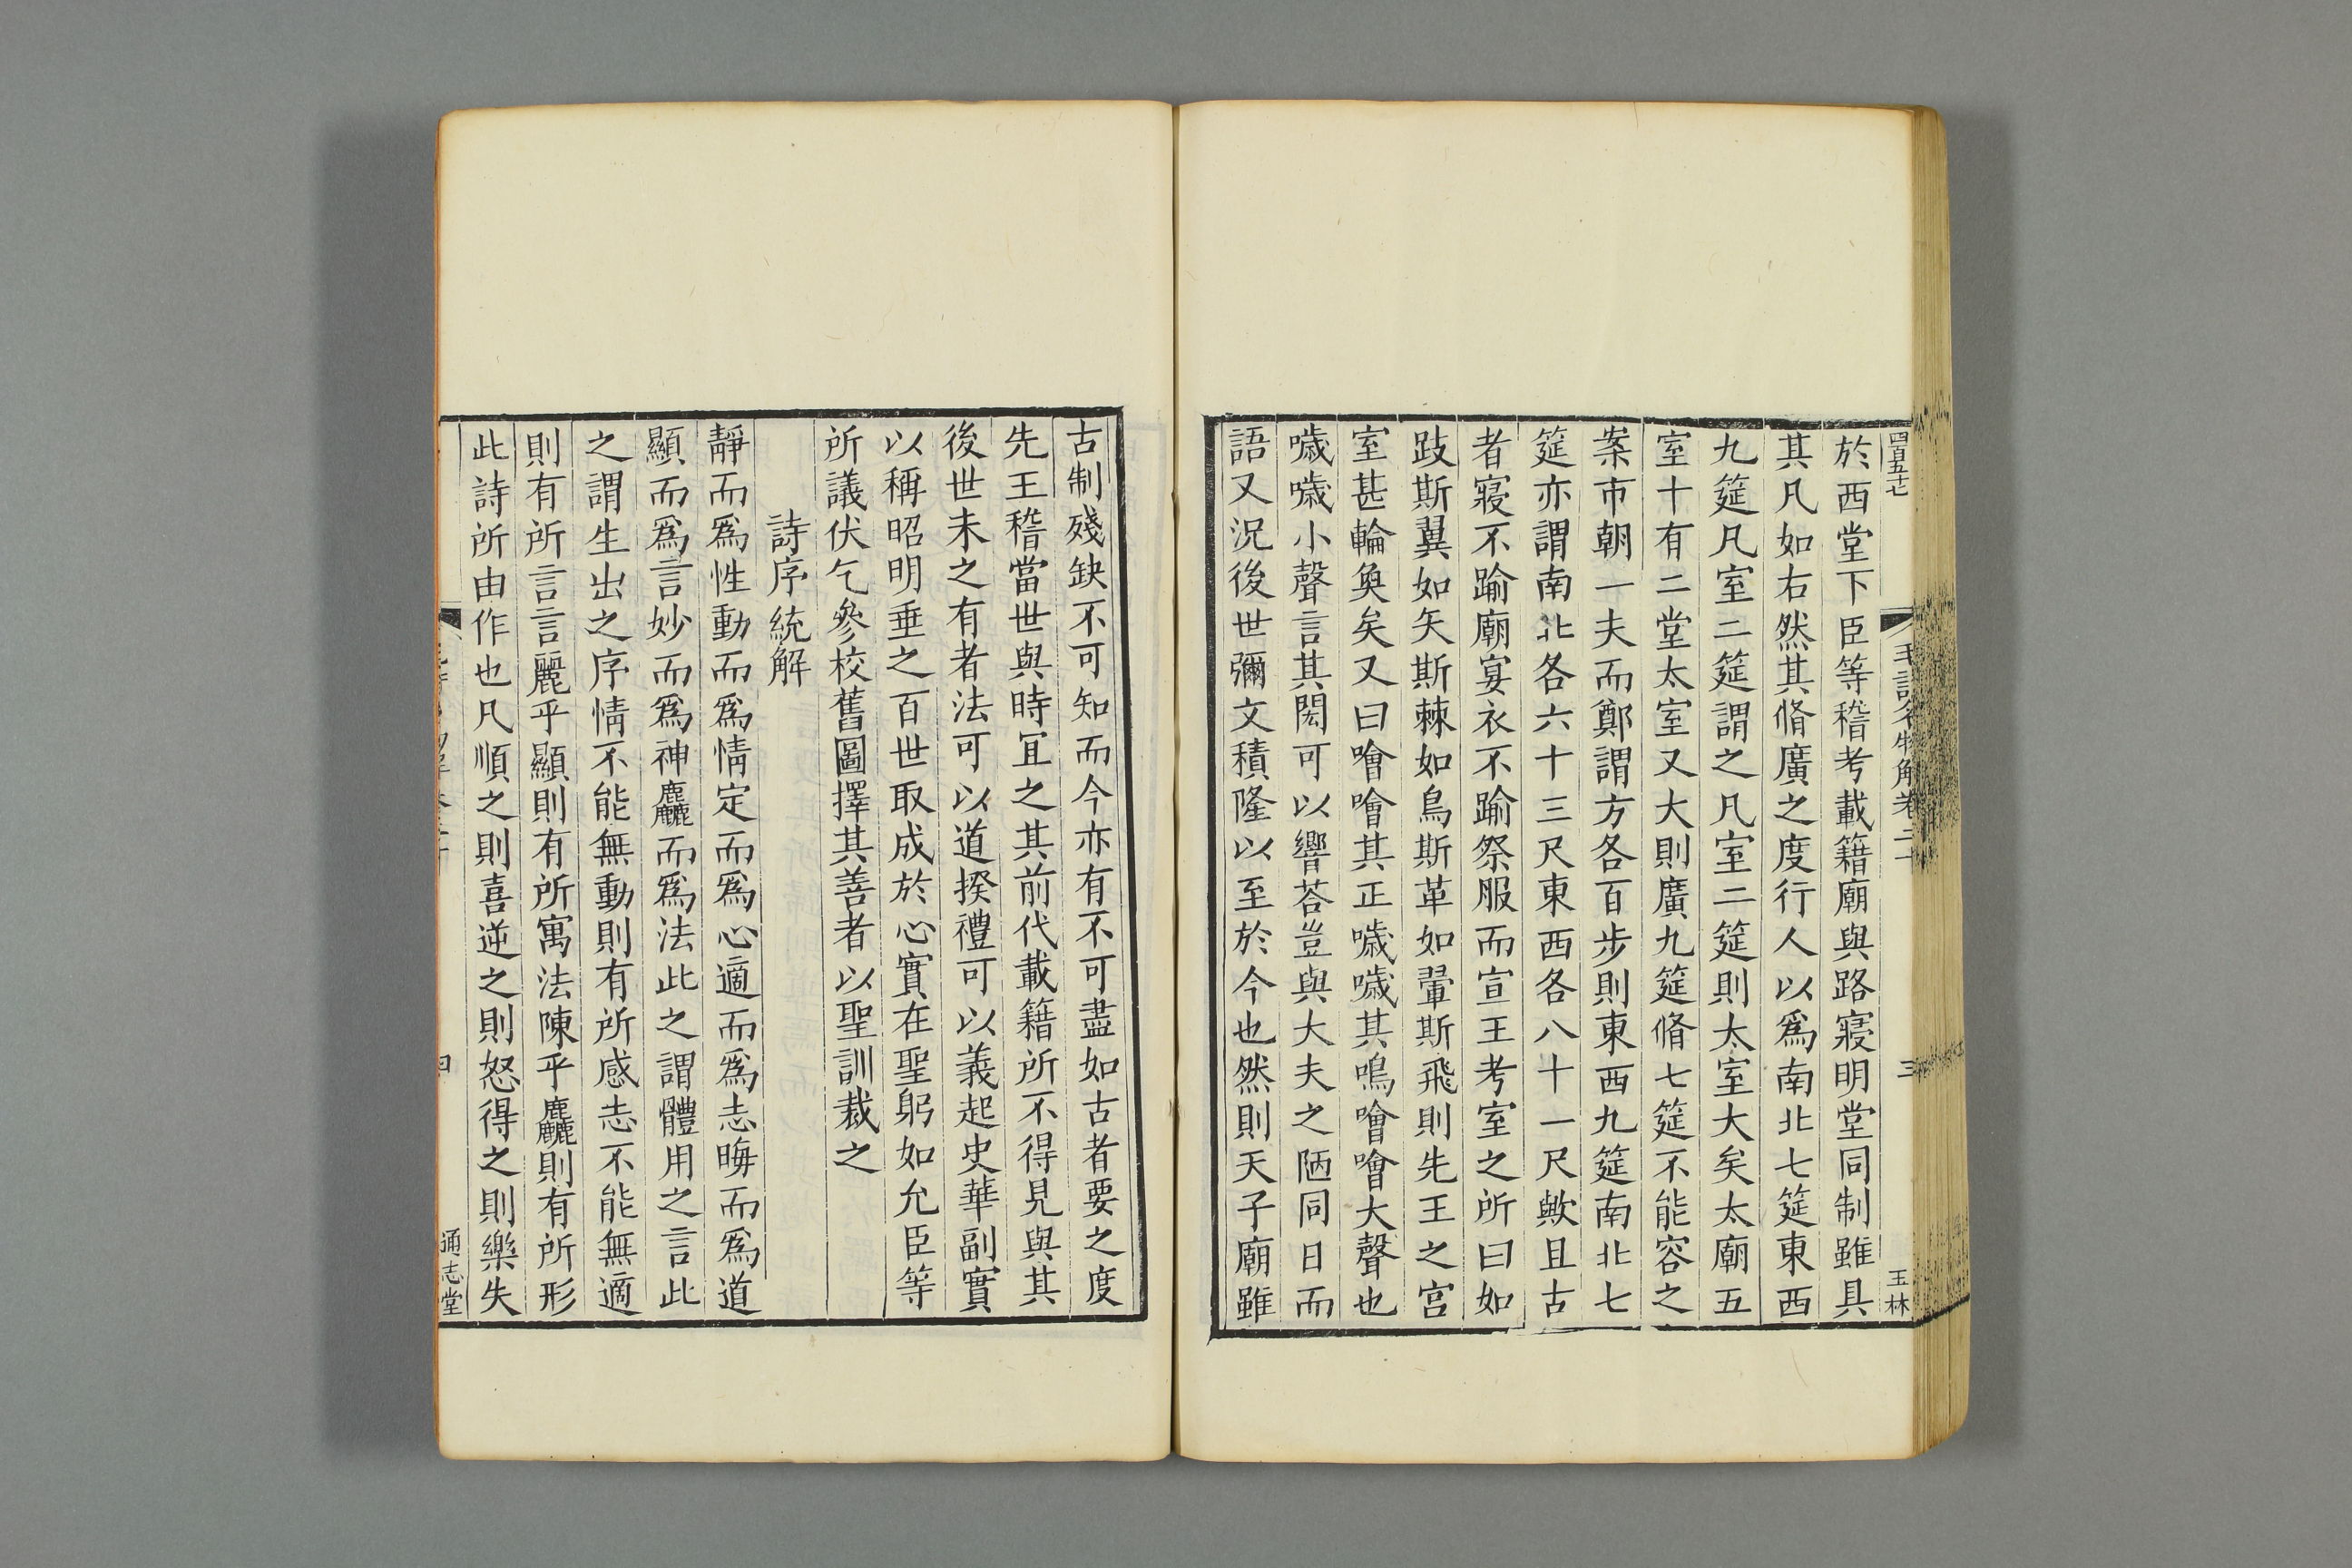 四百五十七
毛詩名物解卷二十
三
玉林
於西堂下臣等稽考載籍廟與路寢明堂同制雖具
其凡如右然其脩廣之度行人以爲南北七筵東西
九筵凡室二筵謂之凡室二筵則太室大矣太廟五
室十有二堂太室又大則廣九筵脩七筵不能容之
案市朝一夫而鄭謂方各百步則東西九筵南北七
筵亦謂南北各六十三尺東西各八十一尺歟且古
者寢不踰廟宴衣不踰祭服而宣王考室之所曰如
跂斯翼如矢斯棘如鳥斯革如翬斯飛則先王之宮
室甚輪奐矣又曰噲噲其正噦噦其鳴噲噲大聲也
噦噦小聲言其閎可以響荅豈與大夫之陋同日而
語又況後世彌文積隆以至於今也然則天子廟雖
古制殘缺不可知而今亦有不可盡如古者要之度
先王稽當世與時冝之其前代載籍所不得見與其
後世未之有者法可以道揆禮可以義起史華副實
以稱昭明垂之百世取成於心實在聖躬如允臣等
所議伏乞參校舊圖擇其善者以聖訓裁之
詩序統解
靜而爲性動而爲情定而爲心適而爲志晦而爲道
顯而爲言妙而爲神麤而爲法此之謂體用之言此
之謂生出之序情不能無動則有所感志不能無適
則有所言言麗乎顯則有所寓法陳乎麤則有所形
此詩所由作也凡順之則喜逆之則怒得之則樂失
四
通志堂